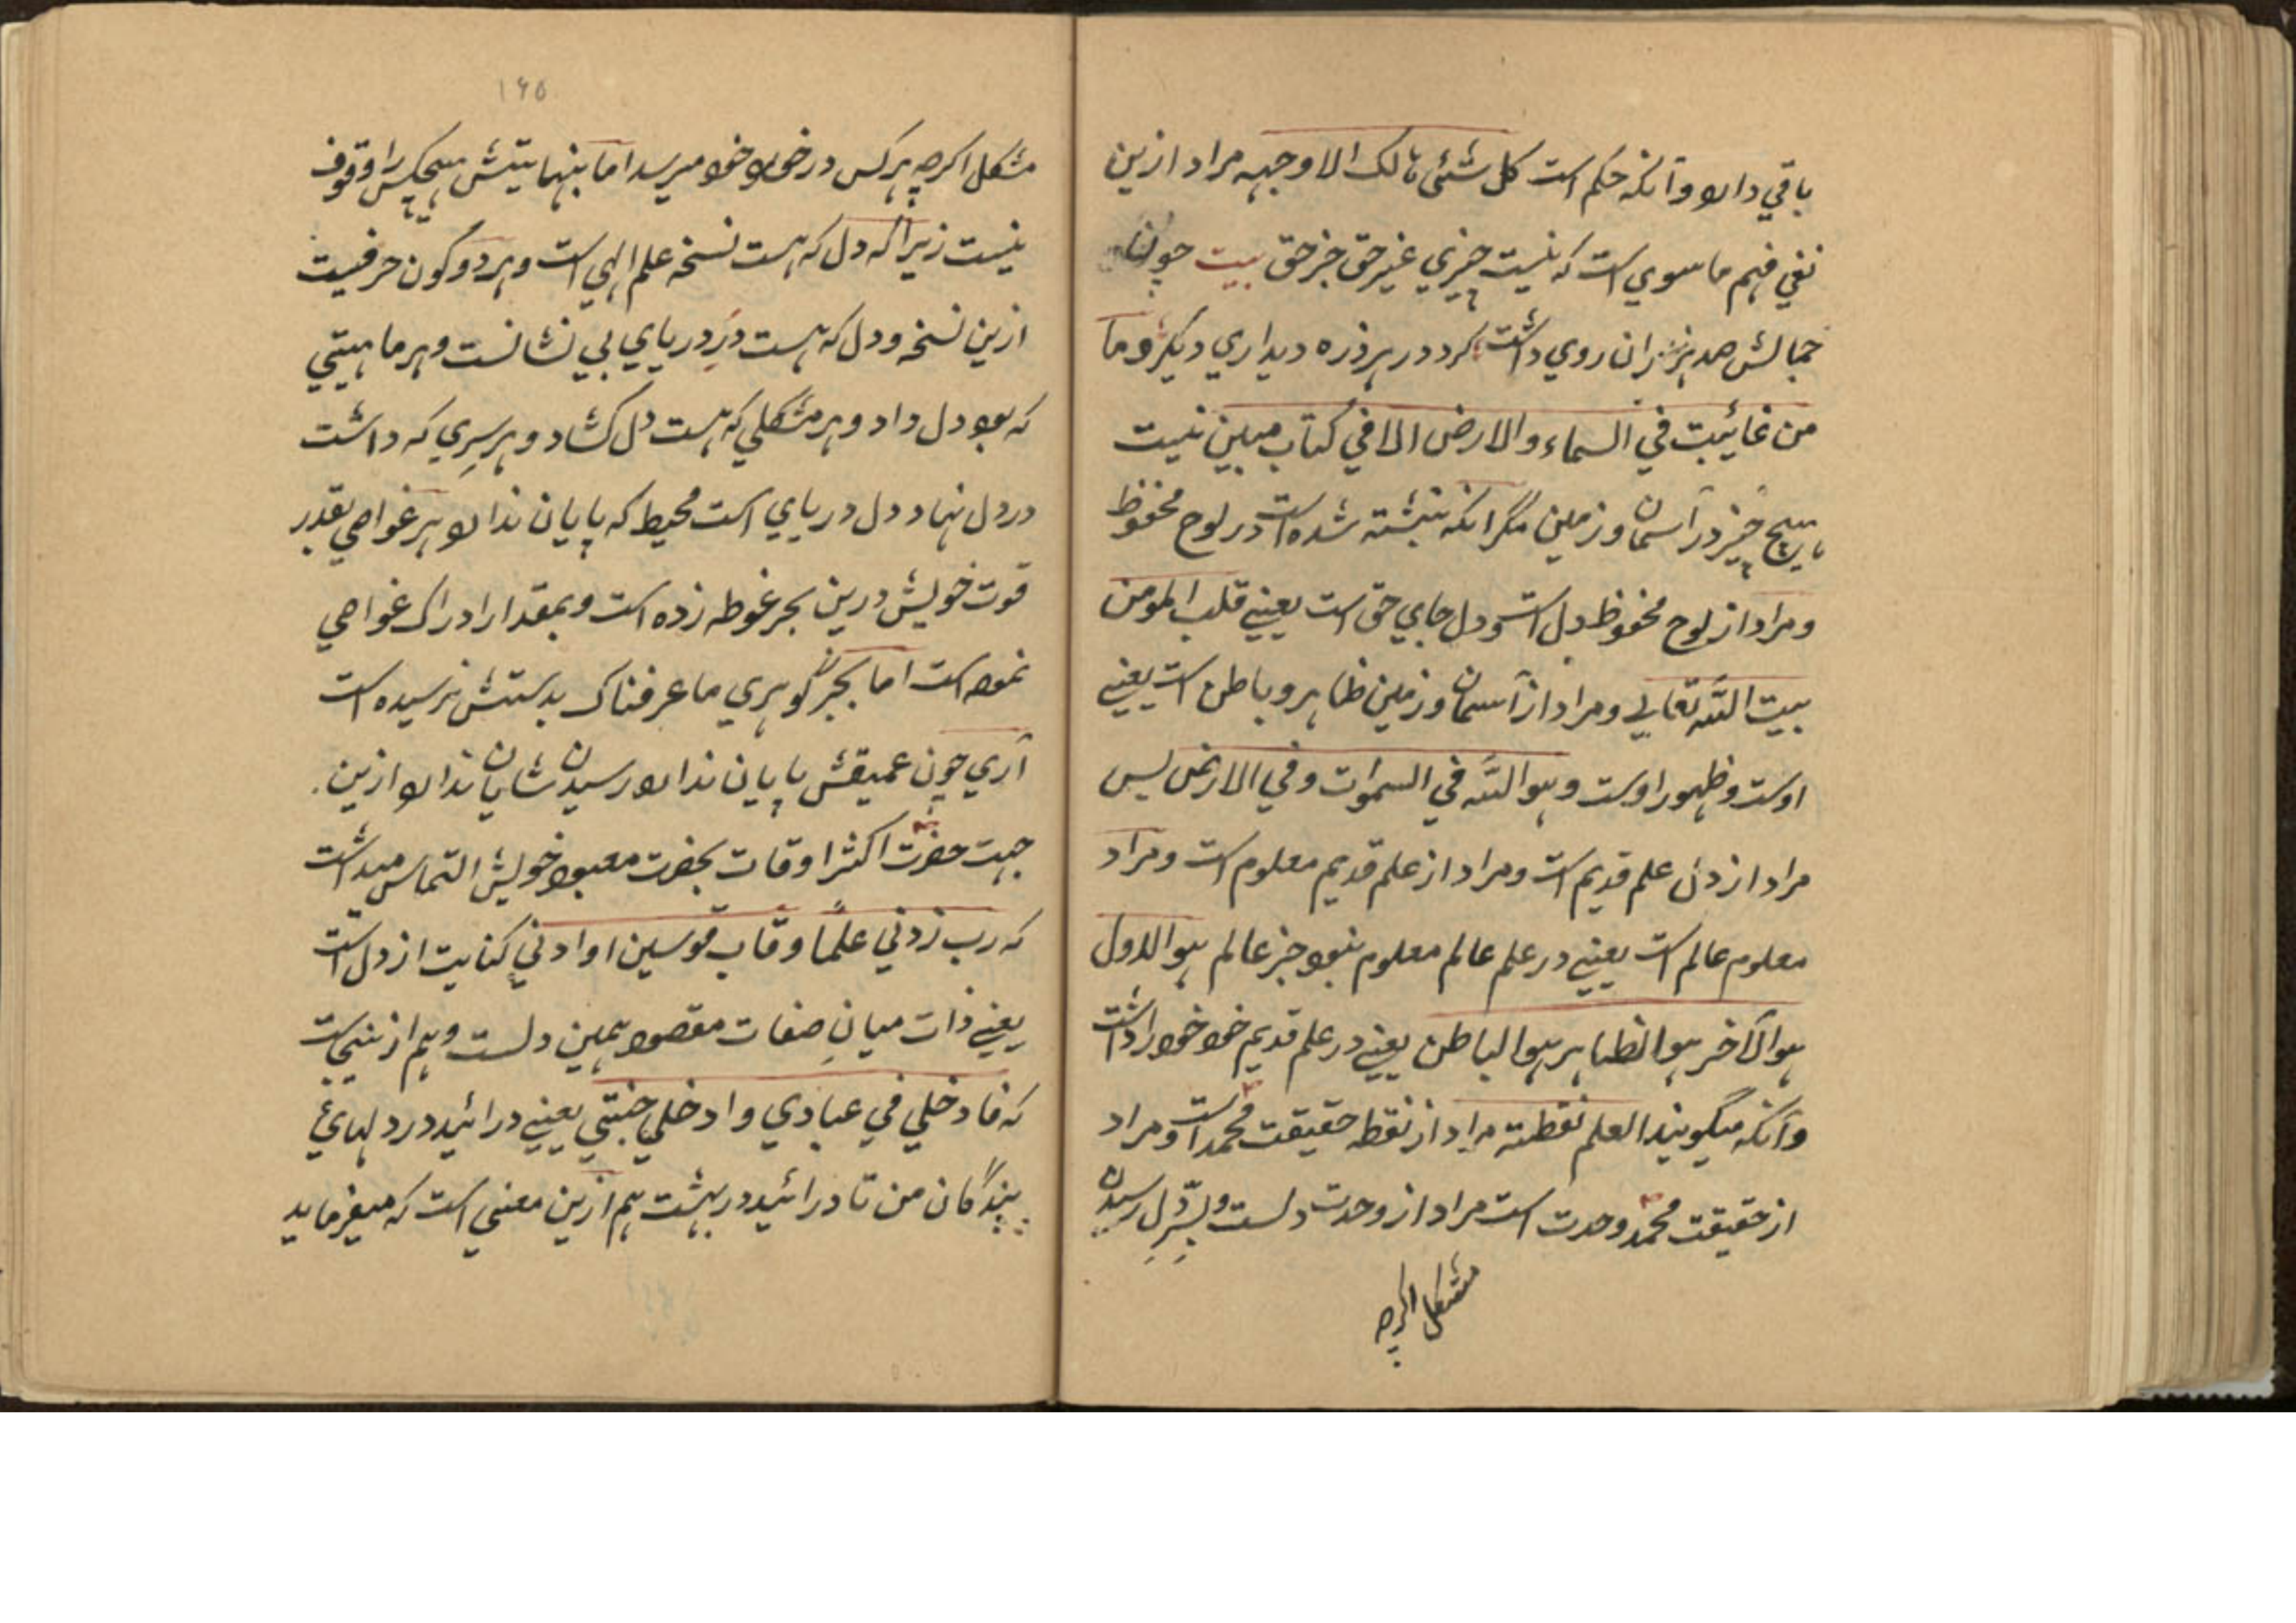 باقي دارد و آنکه حکم است کل شئی هالک الا وجهه مراد ازین
نفي فهم ما سوي است که نیست چیزي غیر حق جز حق بیت چون
جمالش صد هزاران روي داشت کرد در هر ذره دیداري دیگر و ما
من غائبت في السماء والارض الا في کتاب مبین نیست
هیچ چیز در آسمان و زمین مگر انکه نبشته شده است در لوح محفوظ
و مراد از لوح محفوظ دل است و دل جاي حق است یعنے قلب المومن
بیت اللّه تعالي و مراد از آسمان و زمین ظاهر و باطن است یعنے
اوست و ظهور اوست و هو اللّه في السموات و في الارض پس
مراد از دل علم قدیم است و مراد از علم قدیم معلوم است و مراد
معلوم عالم است یعنے در علم عالم معلوم نبود جز عالم هو الاول
هو الآخر هو الظاهر هو الباطن یعنے در علم قدیم خود خود را داشت
و آنکه میگویند العلم نقطة مراد از نقطه حقیقت محمد است و مراد
از حقیقت محمد وحدت است مراد از وحدت دلست و بسّرِ دل رسیدن
مشکل اکرچه
۱۶۵
مشکل اکرچه هرکس در خورد خود میرسد اما بنهایتش هیچکس را وقوف
نیست زیرا که دل که هست نسخه علم الهي است و هر دو کون حرفیست
ازین نسخه و دل که هست دُرِ دریاي بي نشانست و هر ماهیتي
که بود دل داد و هر مشکلي که هست دل کشاد و هر سِرِي که داشت
در دل نهاد و دل دریایي است محیط که پایان ندارد هر غواصي بقدر
قوت خویش درین بحر غوطه زده است و بمقدار ادراک غواصي
نموده است اما بجز گوهري ما عرفناک بدستش نرسیده است
آري چون عمیقش پایان ندارد رسیدن شایان ندارد ازین
جهت حضرت اکثر اوقات بحضرت معبود خویش التماس میداشت
که رب زدني علمًا و قاب قوسین او ادني کنایت از دل است
یعنے ذات میانِ صفات مقصود همین دلست و هم ازینجاست
که فادخلي في عبادي وادخلي جنتي یعنے درائید در دلهاي
بندگان من تا درائید در بهشت هم ازین معني است که میفرماید